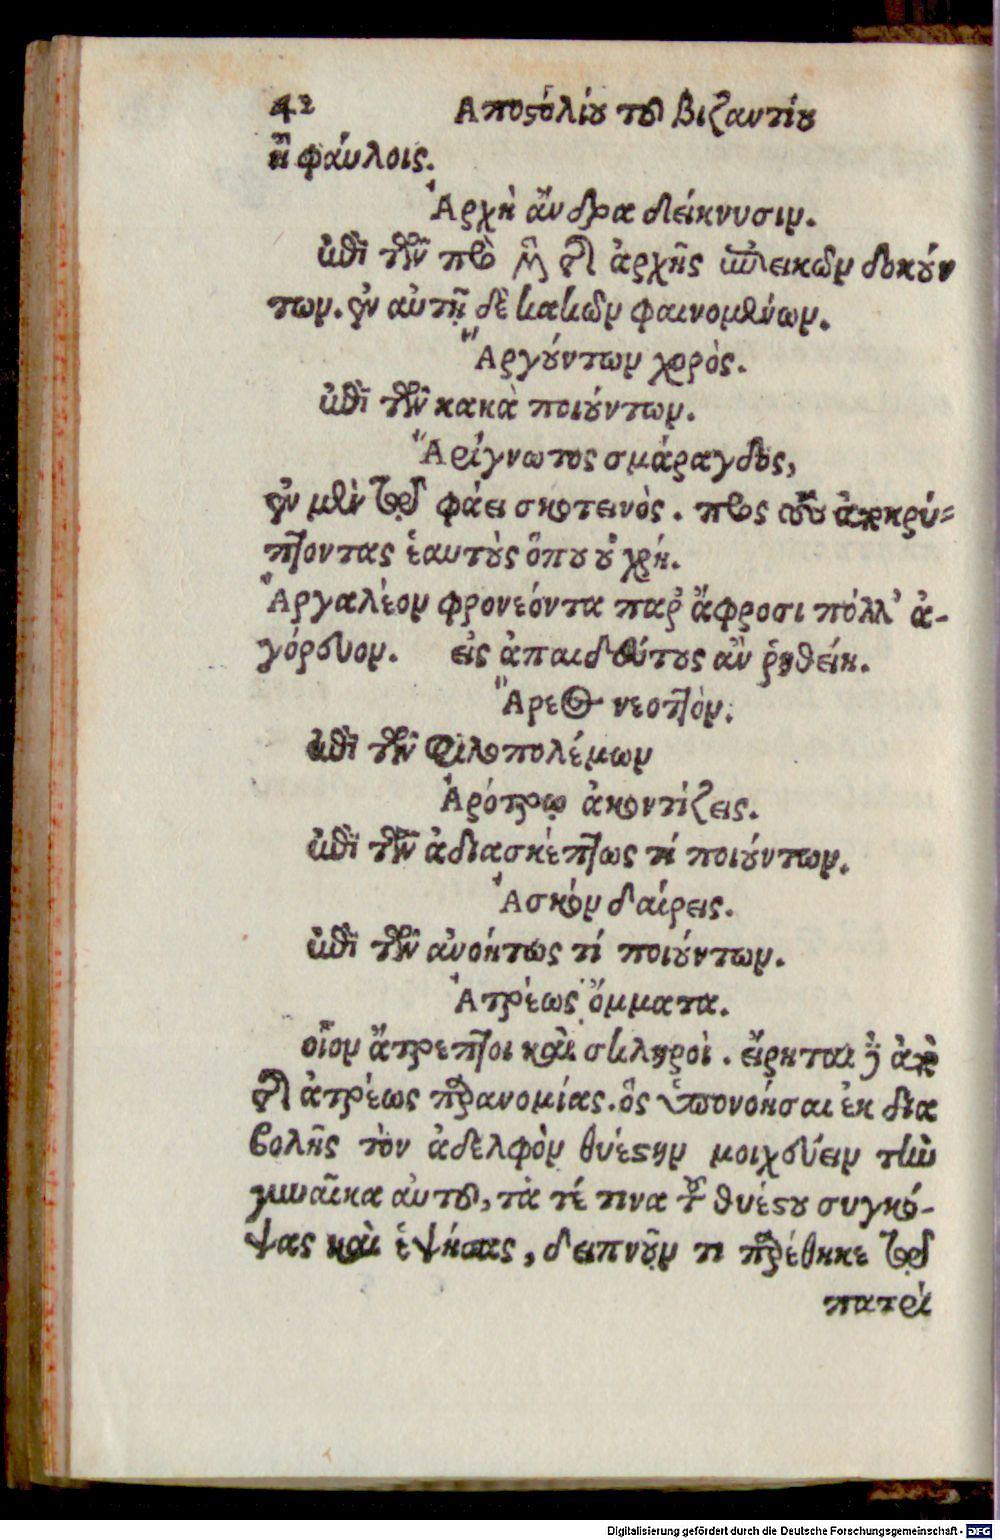 42 Αποστόλίου τοῦ βιζαντίου
ἢ φάυλοις.
Ἀρχὴ ἄνδρα δείκνυσιν.
ἐπὶ τῶν πρὸ μὲν τῆς ἀρχῆς ἐπιεικῶν δοκούν
των. ἐν αὐτῇ δὲ κακῶν φαινομένων.
Ἀργούντων χορὸς.
ἐπὶ τῶν κακὰ ποιούντων.
Ἀρίγνωτος σμάραγδος,
ἐν μὲν τῷ φάει σκοτεινὸς. πρὸς τοὺς ἀποκρύ=
πτοντας ἑαυτοὺς ὅπου οὐ χρή.
Ἀργαλέον φρονέοντα παρ' ἄφροσι πόλλ' ἀ-
γόρευον. εἰς ἀπαιδεύτους ἂν ῥηθείη.
Ἄρεος νεοττὸν.
ἐπὶ τῶν φιλοπολέμων
Ἀρότρῳ ἀκοντίζεις.
ἐπὶ τῶν ἀδιασκέπτως τί ποιούντων.
Ἀσκὸν δαίρεις.
ἐπὶ τῶν ἀνοήτως τί ποιούντων.
Ἀτρέως ὄμματα.
οἷον ἄτρεπτοι καὶ σκληροὶ. εἴρηται δὲ ἀπὸ
τῆς ἀτρέως παρανομίας. ὃς ὑπονοήσαι ἐκ δια
βολῆς τὸν ἀδελφὸν θυέστην μοιχεύειν τὴν
γυναῖκα αὐτοῦ, τὰ τέ τινα τοῦ θυέστου συγκό-
ψας καὶ ἑψήσας, δειπνοῦν τι παρέθηκε τῷ
πατρὶ
Digitalisierung gefördert durch die Deutsche Forschungsgemeinschaft - DFG